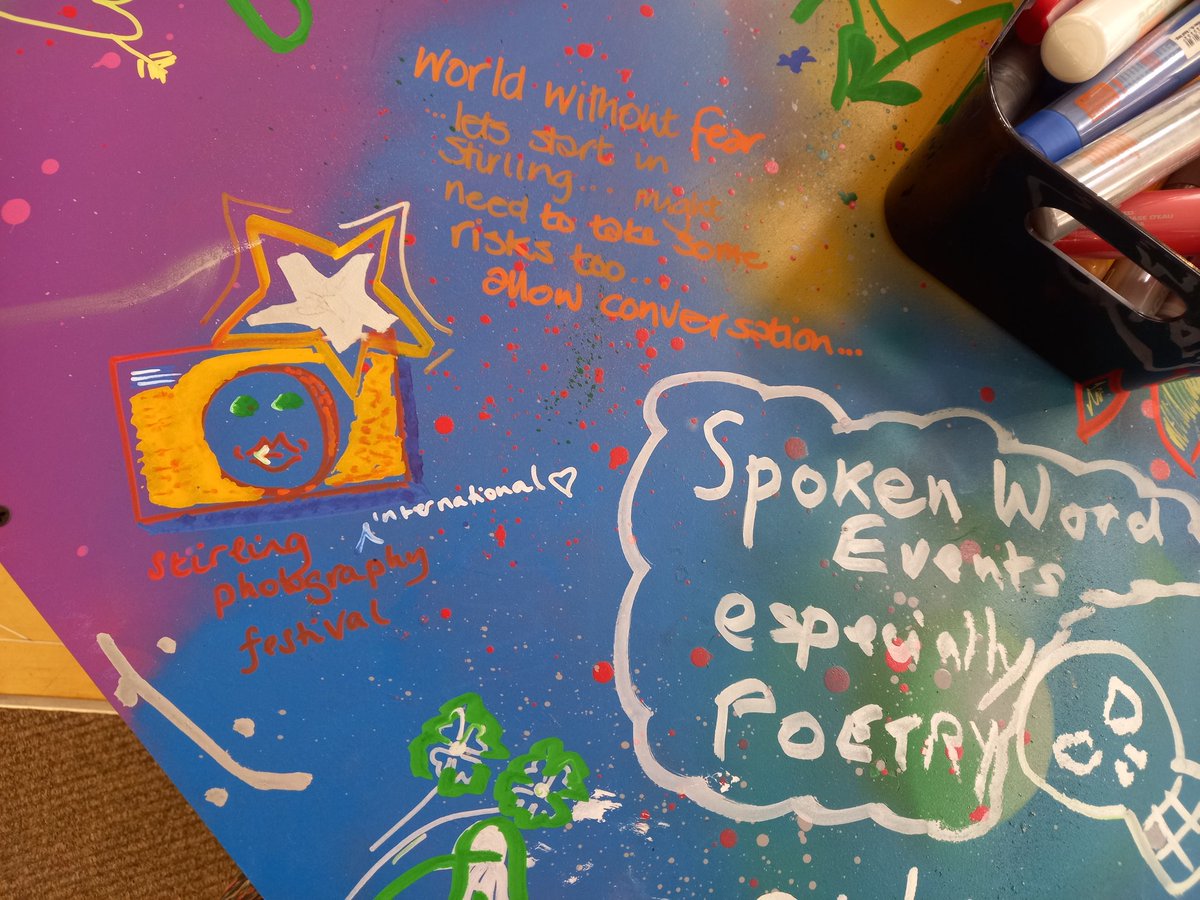 world without fear
...lets start in
Stirling... might
need to take some
risks too...
allow conversation...
international
stirling
photography
festival
Spoken Word
Events
especially
POETRY